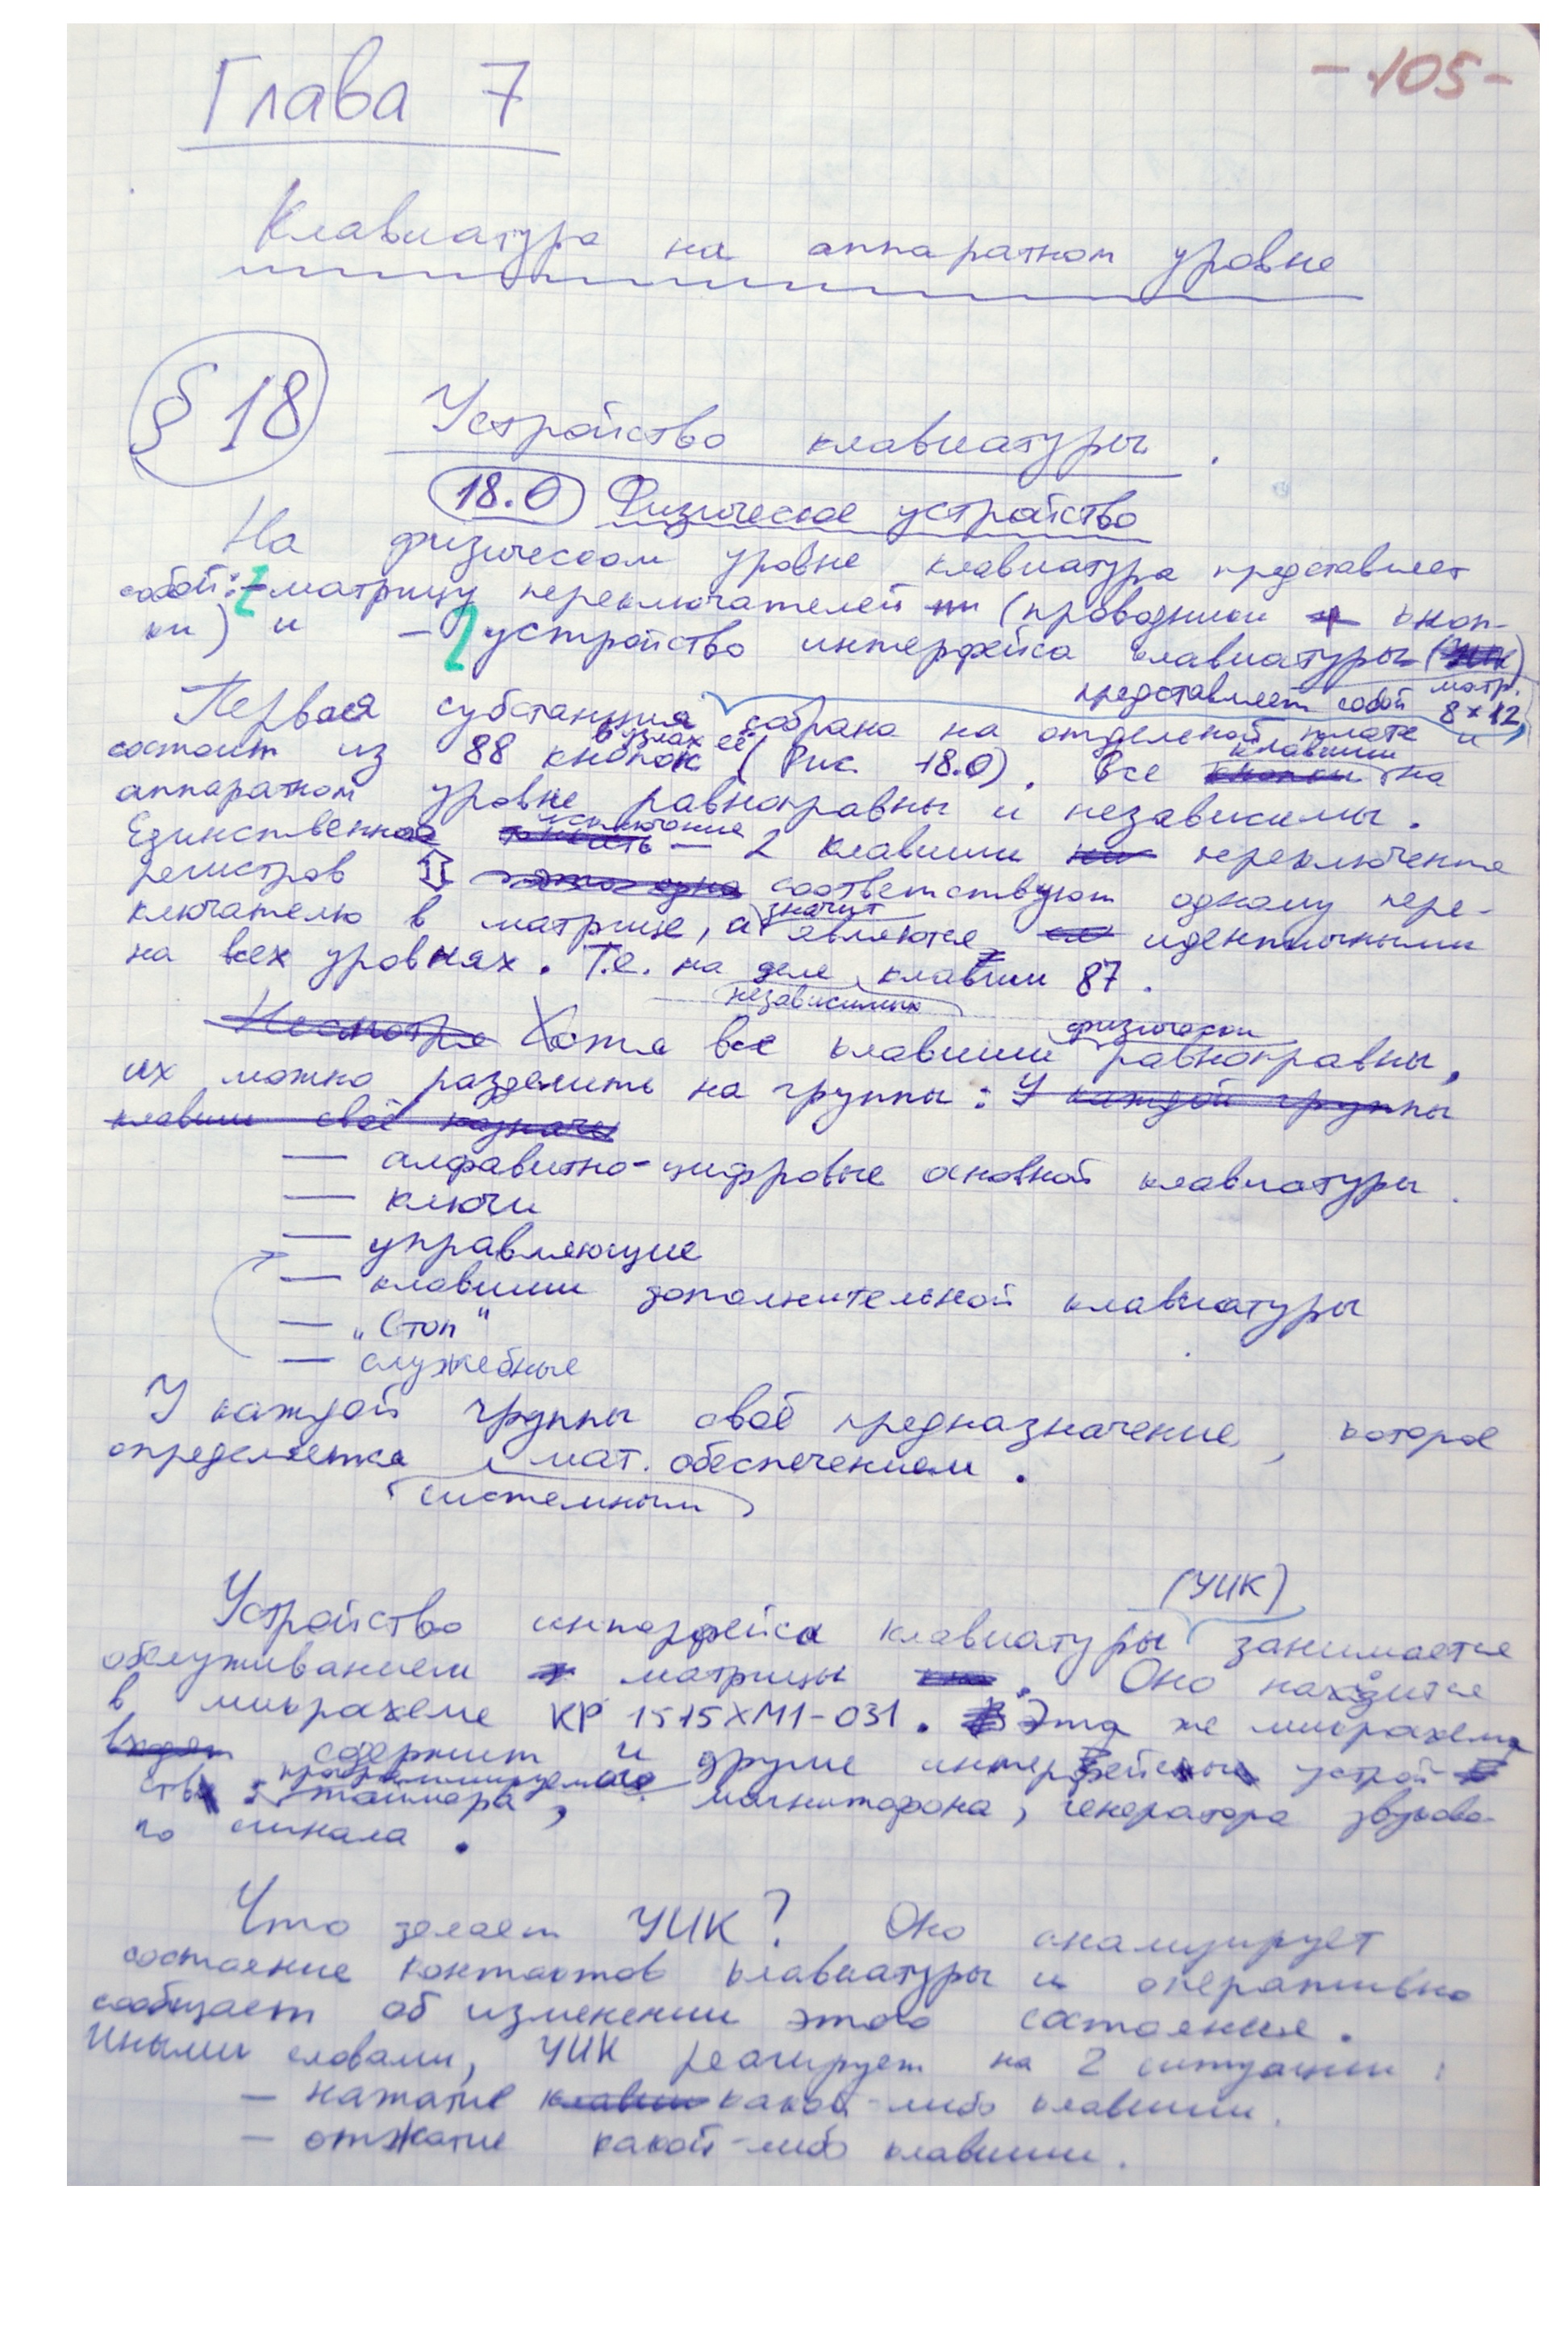 -105-
Глава 7
Клавиатура на аппаратном уровне
§ 18
Устройство клавиатуры.
18.0 Физическое устройство
На физическом уровне клавиатура представляет
собой: - матрицу переключателей (проводники + кноп-
ки) и - устройство интерфейса клавиатуры
представляет собой матр. 8×12
Первая субстанция собрана на отдельной плате и
состоит из 88 кнопок в узлах её (Рис 18.0). Все клавиши на
аппаратном уровне равноправны и независимы.
Единственное исключение — 2 клавиши переключения
регистров ⇕ соответствуют одному пере-
ключателю в матрице, а значит являются идентичными
на всех уровнях. Т.е. на деле клавиш 87.
независимых
Хотя все клавиши физически равноправны,
их можно разделить на группы: У каждой группы
клавиш своё назначе
— алфавитно-цифровые основной клавиатуры.
— ключи
— управляющие
— клавиши дополнительной клавиатуры
— „Стоп"
— служебные
У каждой группы своё предназначение, которое
определяется мат. обеспечением.
системным
(УИК)
Устройство интерфейса клавиатуры занимается
обслуживанием матрицы. Оно находится
в микрахеме КР 1515ХМ1-031. Эта же микрахема
содержит и другие интерфейсы устрой
ств: программируемого таймера, магнитофона, генератора звуково-
го сигнала.
Что делает УИК? Оно анализирует
состояние контактов клавиатуры и оперативно
сообщает об изменении этого состояния.
Иными словами, УИК реагирует на 2 ситуации:
— нажатие какой-либо клавиши.
— отжатие какой-либо клавиши.